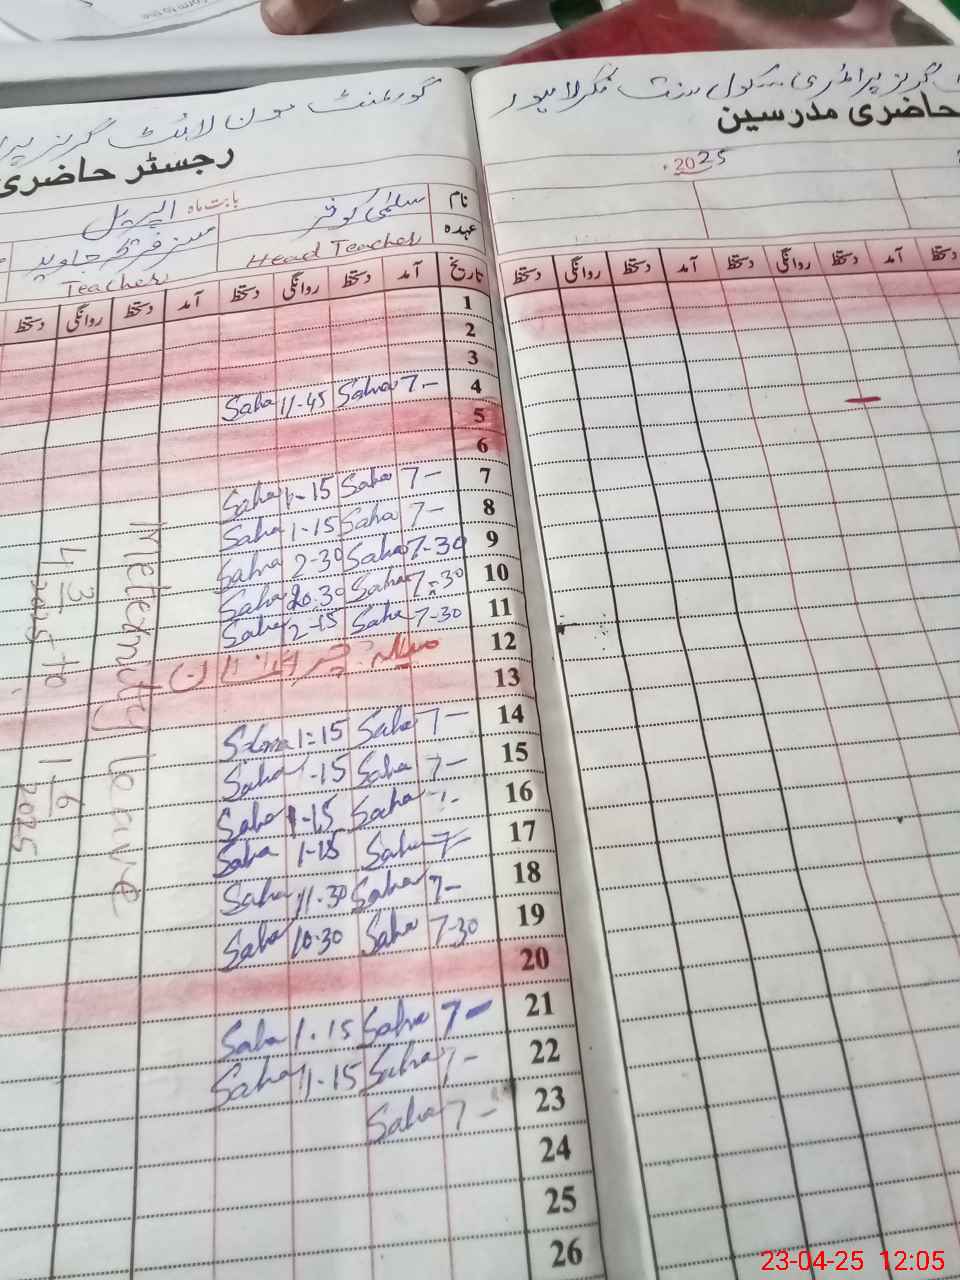 گورنمنٹ مون لائٹ گرلز پرا
گرلز پرائمری سکول سنت نگر لاہور
رجسٹر حاضری
حاضری مدرسین
بابت ماہ اپریل
2025
نام
سلمیٰ کوثر
عہدہ
Head Teacher
مسز فرح جاوید
Teacher
تاریخ آمد دستخط روانگی دستخط آمد دستخط روانگی دستخط
دستخط روانگی دستخط آمد دستخط روانگی دستخط آمد دستخط
1
2
3
4 7- Saha 11-45 Saha
5
6
7 7- Saha 1-15 Saha
8 7- Saha 1-15 Saha
9 7-30 Saha 2-30 Saha
10 7-30 Saha Saha
11 7-30 Saha 2-15 Saha
12 میلہ چراغاں
13
14 7- Saha 1:15
15 7- Saha 1-15 Saha
16 Saha 1-15 Saha
17 7- Saha 1-15 Saha
18 7- Saha 11.30 Saha
19 7-30 Saha 10-30 Saha
20
21 7- Saha 1.15 Saha
22 7- Saha 1-15 Saha
23 7- Saha
24
25
26
Meternity leave
4 3 2025 to 1-6 2025
23-04-25 12:05